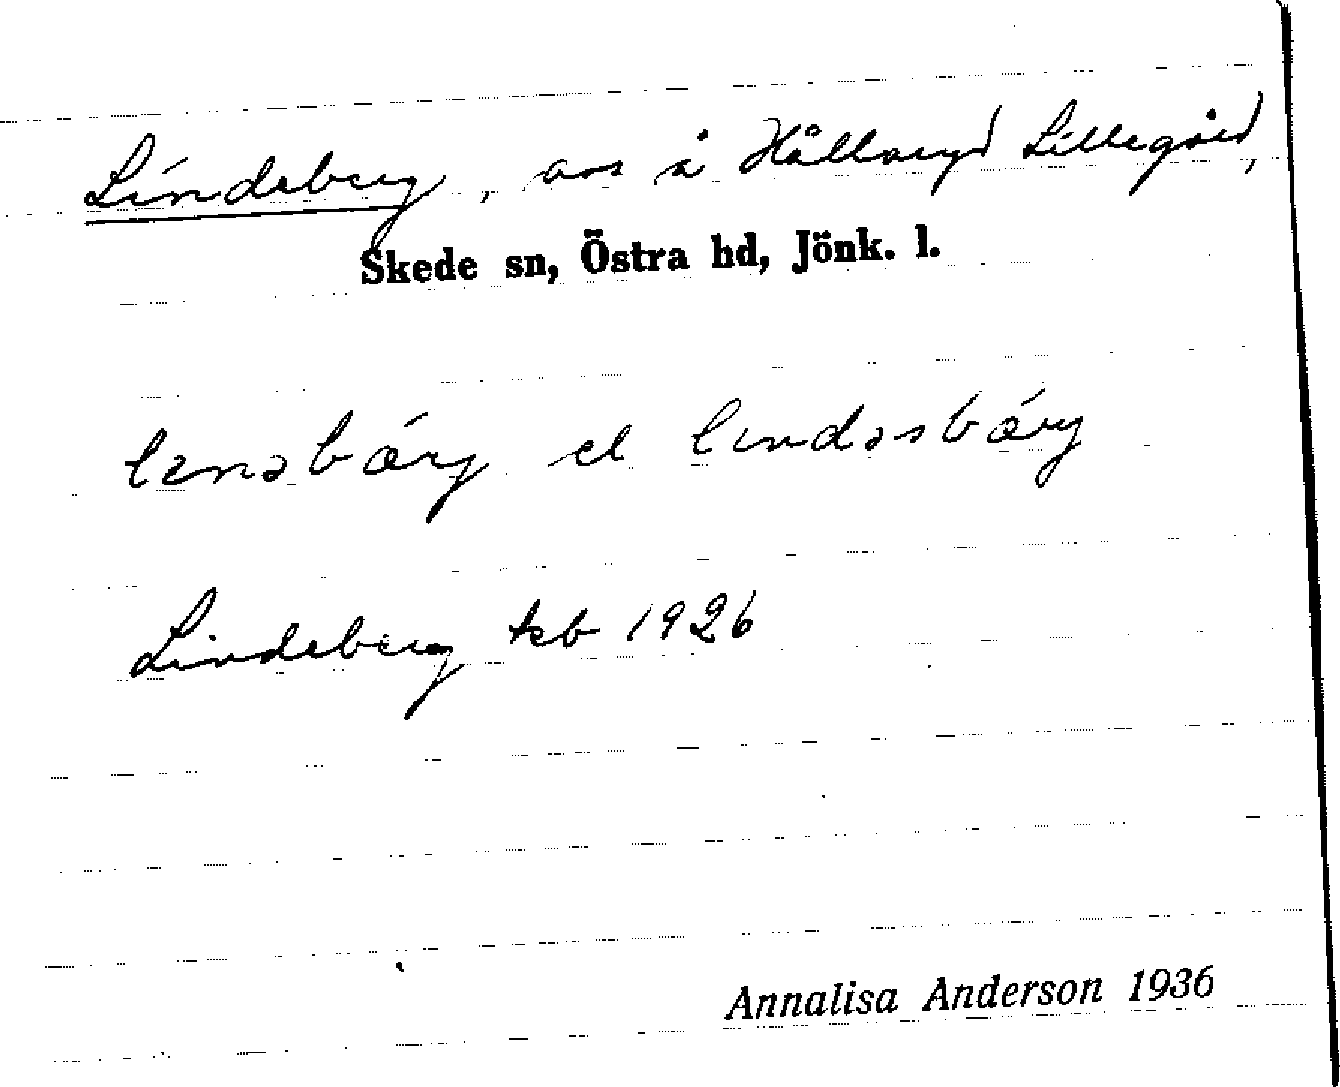 Lindeberg, avs å Hållaryd Lillegård,
Skede sn, Östra hd, Jönk. l.
el
Lindeberg tcb 1926
Annalisa Anderson 1936